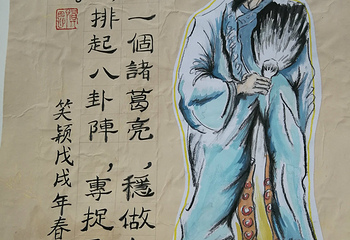 一個諸葛亮，穩做
排起八卦陣，專捉
笑颖戊戌年春